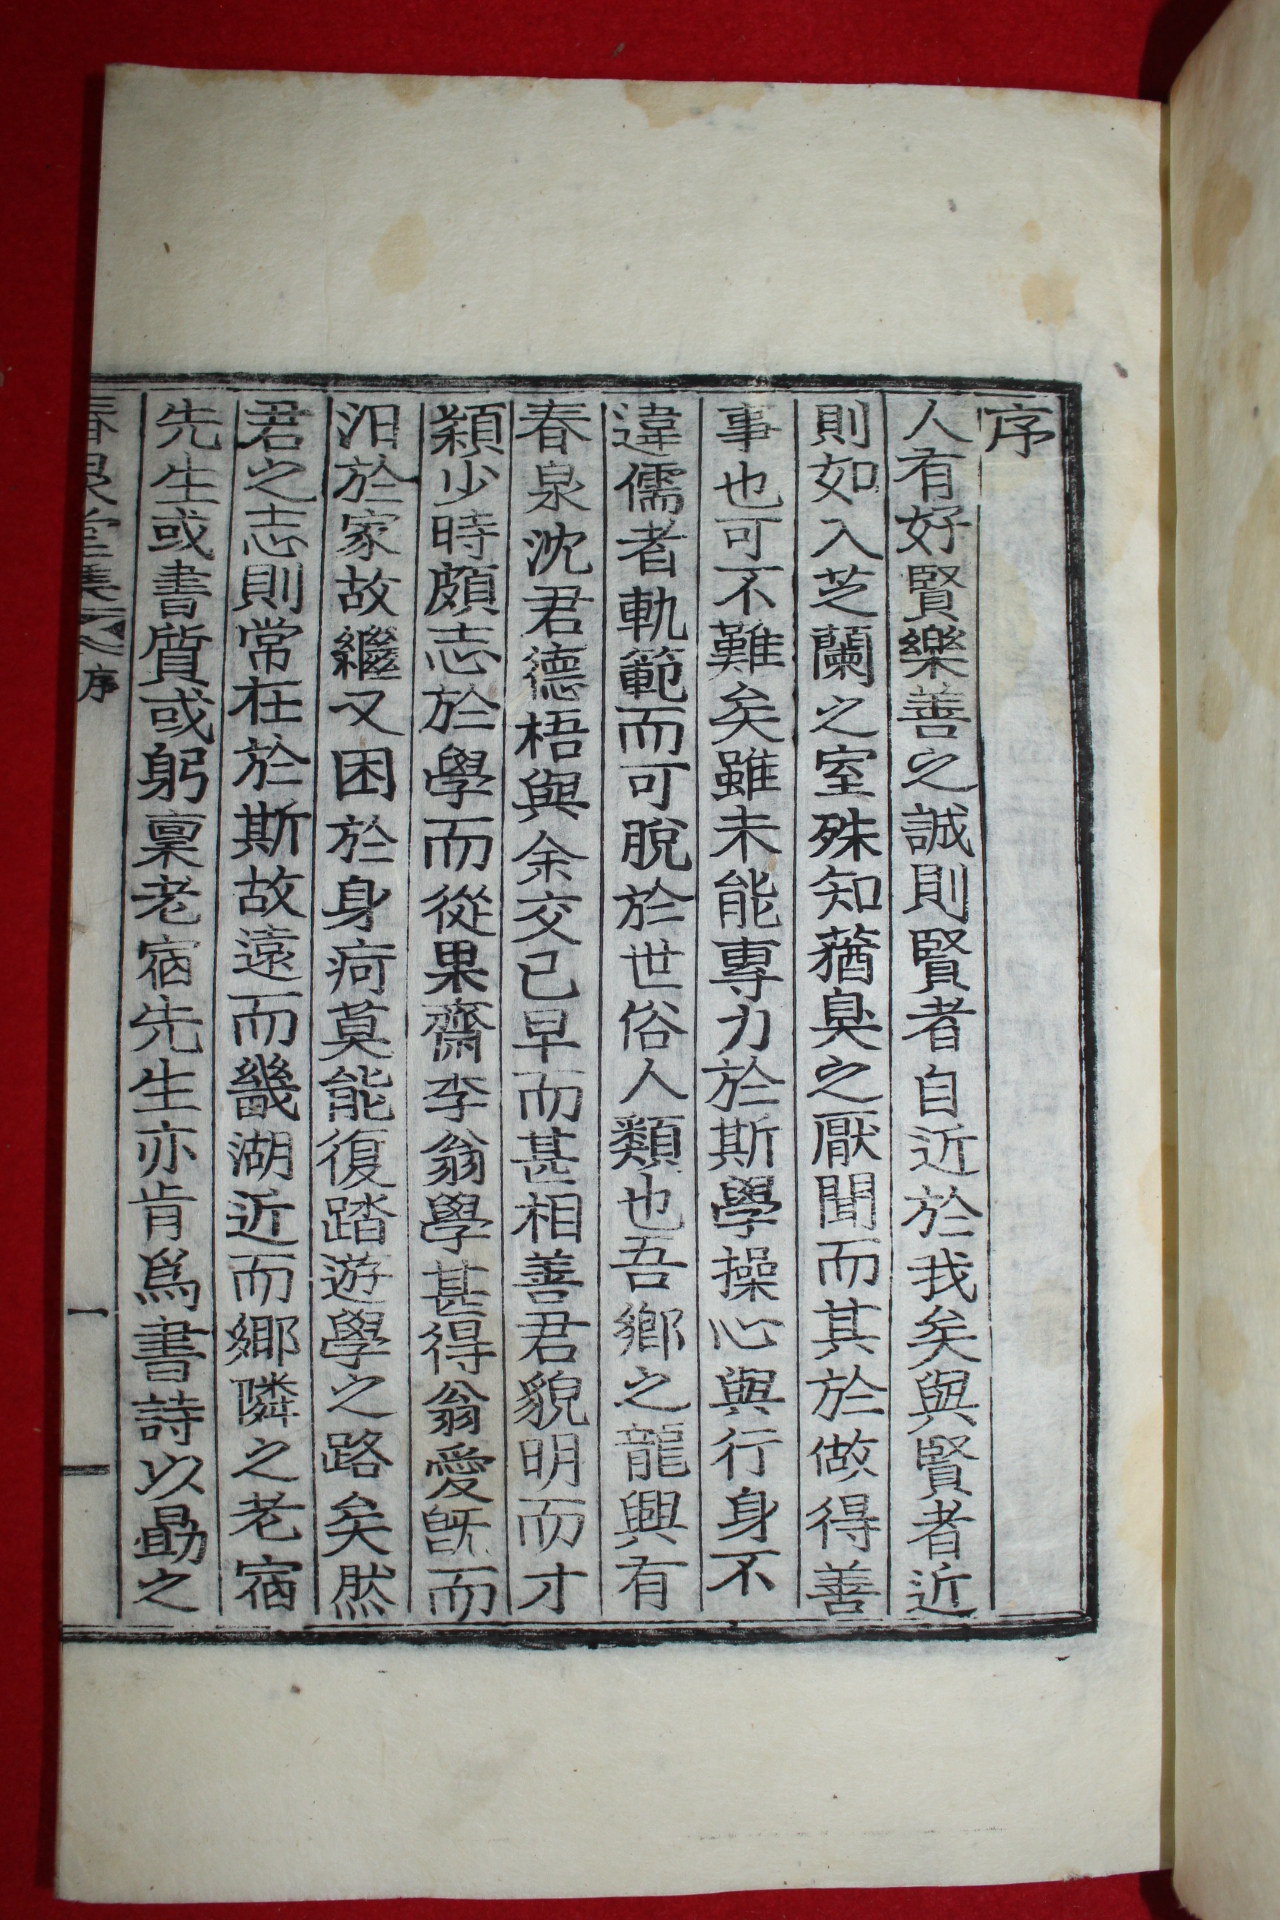 序
人有好賢樂善之誠則賢者自近於我矣與賢者近
則如入芝蘭之室殊知蕕臭之厭聞而其於做得善
事也可不難矣雖未能專力於斯學操心與行身不
違儒者軌範而可脫於世俗人類也吾鄕之龍興有
春泉沈君德梧與余交已早而甚相善君貌明而才
穎少時頗志於學而從果齋李翁學甚得翁愛旣而
汨於家故繼又困於身疴莫能復踏遊學之路矣然
君之志則常在於斯故遠而畿湖近而鄕隣之老宿
先生或書質或躬稟老宿先生亦肯爲書詩以勗之
春泉堂集 序 一